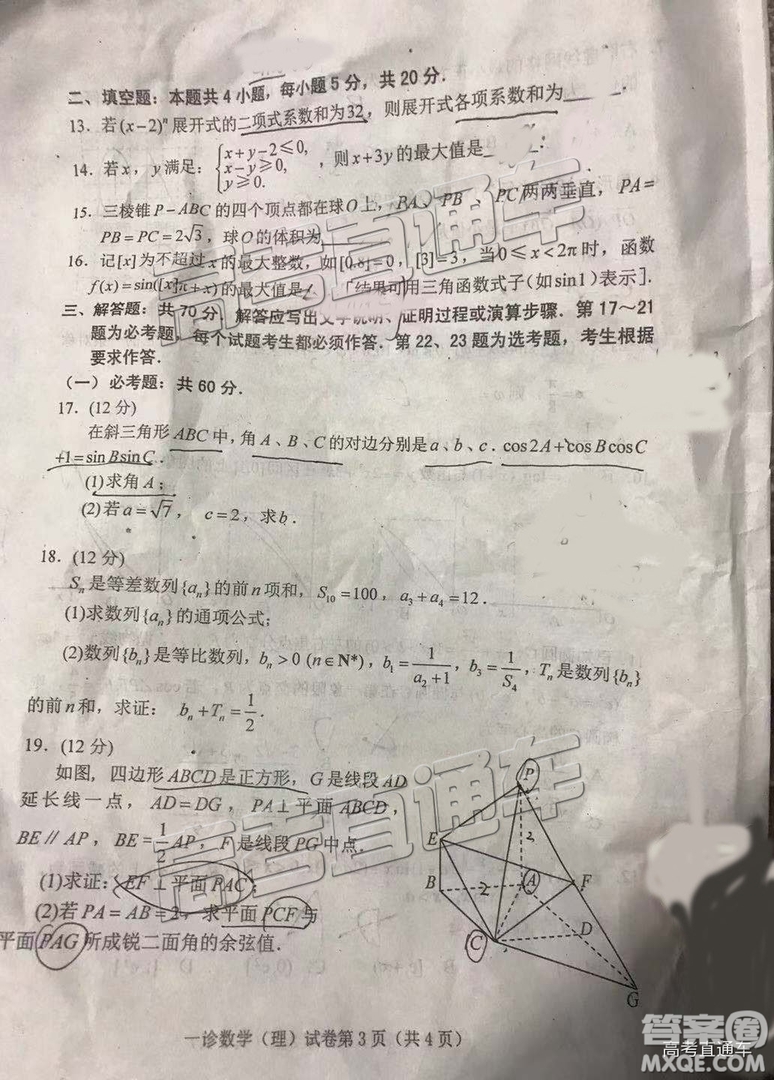 二、填空题：本题共4小题，每小题5分，共20分．
13．若(x-2)ⁿ展开式的二项式系数和为32，则展开式各项系数和为
14．若x，y满足：{x+y-2≤0, x-y≥0, y≥0. ，则x+3y的最大值是
15．三棱锥P-ABC的四个顶点都在球O上，PA、PB、PC两两垂直，PA=
PB=PC=2√3，球O的体积为
16．记[x]为不超过x的最大整数，如[0.8]=0，[3]=3，当0≤x<2π时，函数
f(x)=sin([x]π+x)的最大值是 [结果可用三角函数式子(如sin1)表示]．
三、解答题：共70分．解答应写出文字说明、证明过程或演算步骤．第17～21
题为必考题，每个试题考生都必须作答．第22、23题为选考题，考生根据
要求作答．
（一）必考题：共60分．
17．(12分)
在斜三角形ABC中，角A、B、C的对边分别是a、b、c．cos2A+cosBcosC
+1=sinBsinC．
(1)求角A；
(2)若a=√7，c=2，求b．
18．(12分)
Sₙ是等差数列{aₙ}的前n项和，S₁₀=100，a₃+a₄=12．
(1)求数列{aₙ}的通项公式；
(2)数列{bₙ}是等比数列，bₙ>0 (n∈N*)，b₁=1/(a₂+1)，b₃=1/S₄，Tₙ是数列{bₙ}
的前n和，求证：bₙ+Tₙ=1/2．
19．(12分)
如图，四边形ABCD是正方形，G是线段AD
延长线一点，AD=DG，PA⊥平面ABCD，
BE∥AP，BE=1/2AP，F是线段PG中点．
(1)求证：EF⊥平面PAC；
(2)若PA=AB=2，求平面PCF与
平面PAG所成锐二面角的余弦值．
P
2
E
B
2
A
F
C
D
G
一诊数学（理）试卷第3页（共4页）
高考直通车
高考直通车
答案圈
高考直通车
MXQE.COM